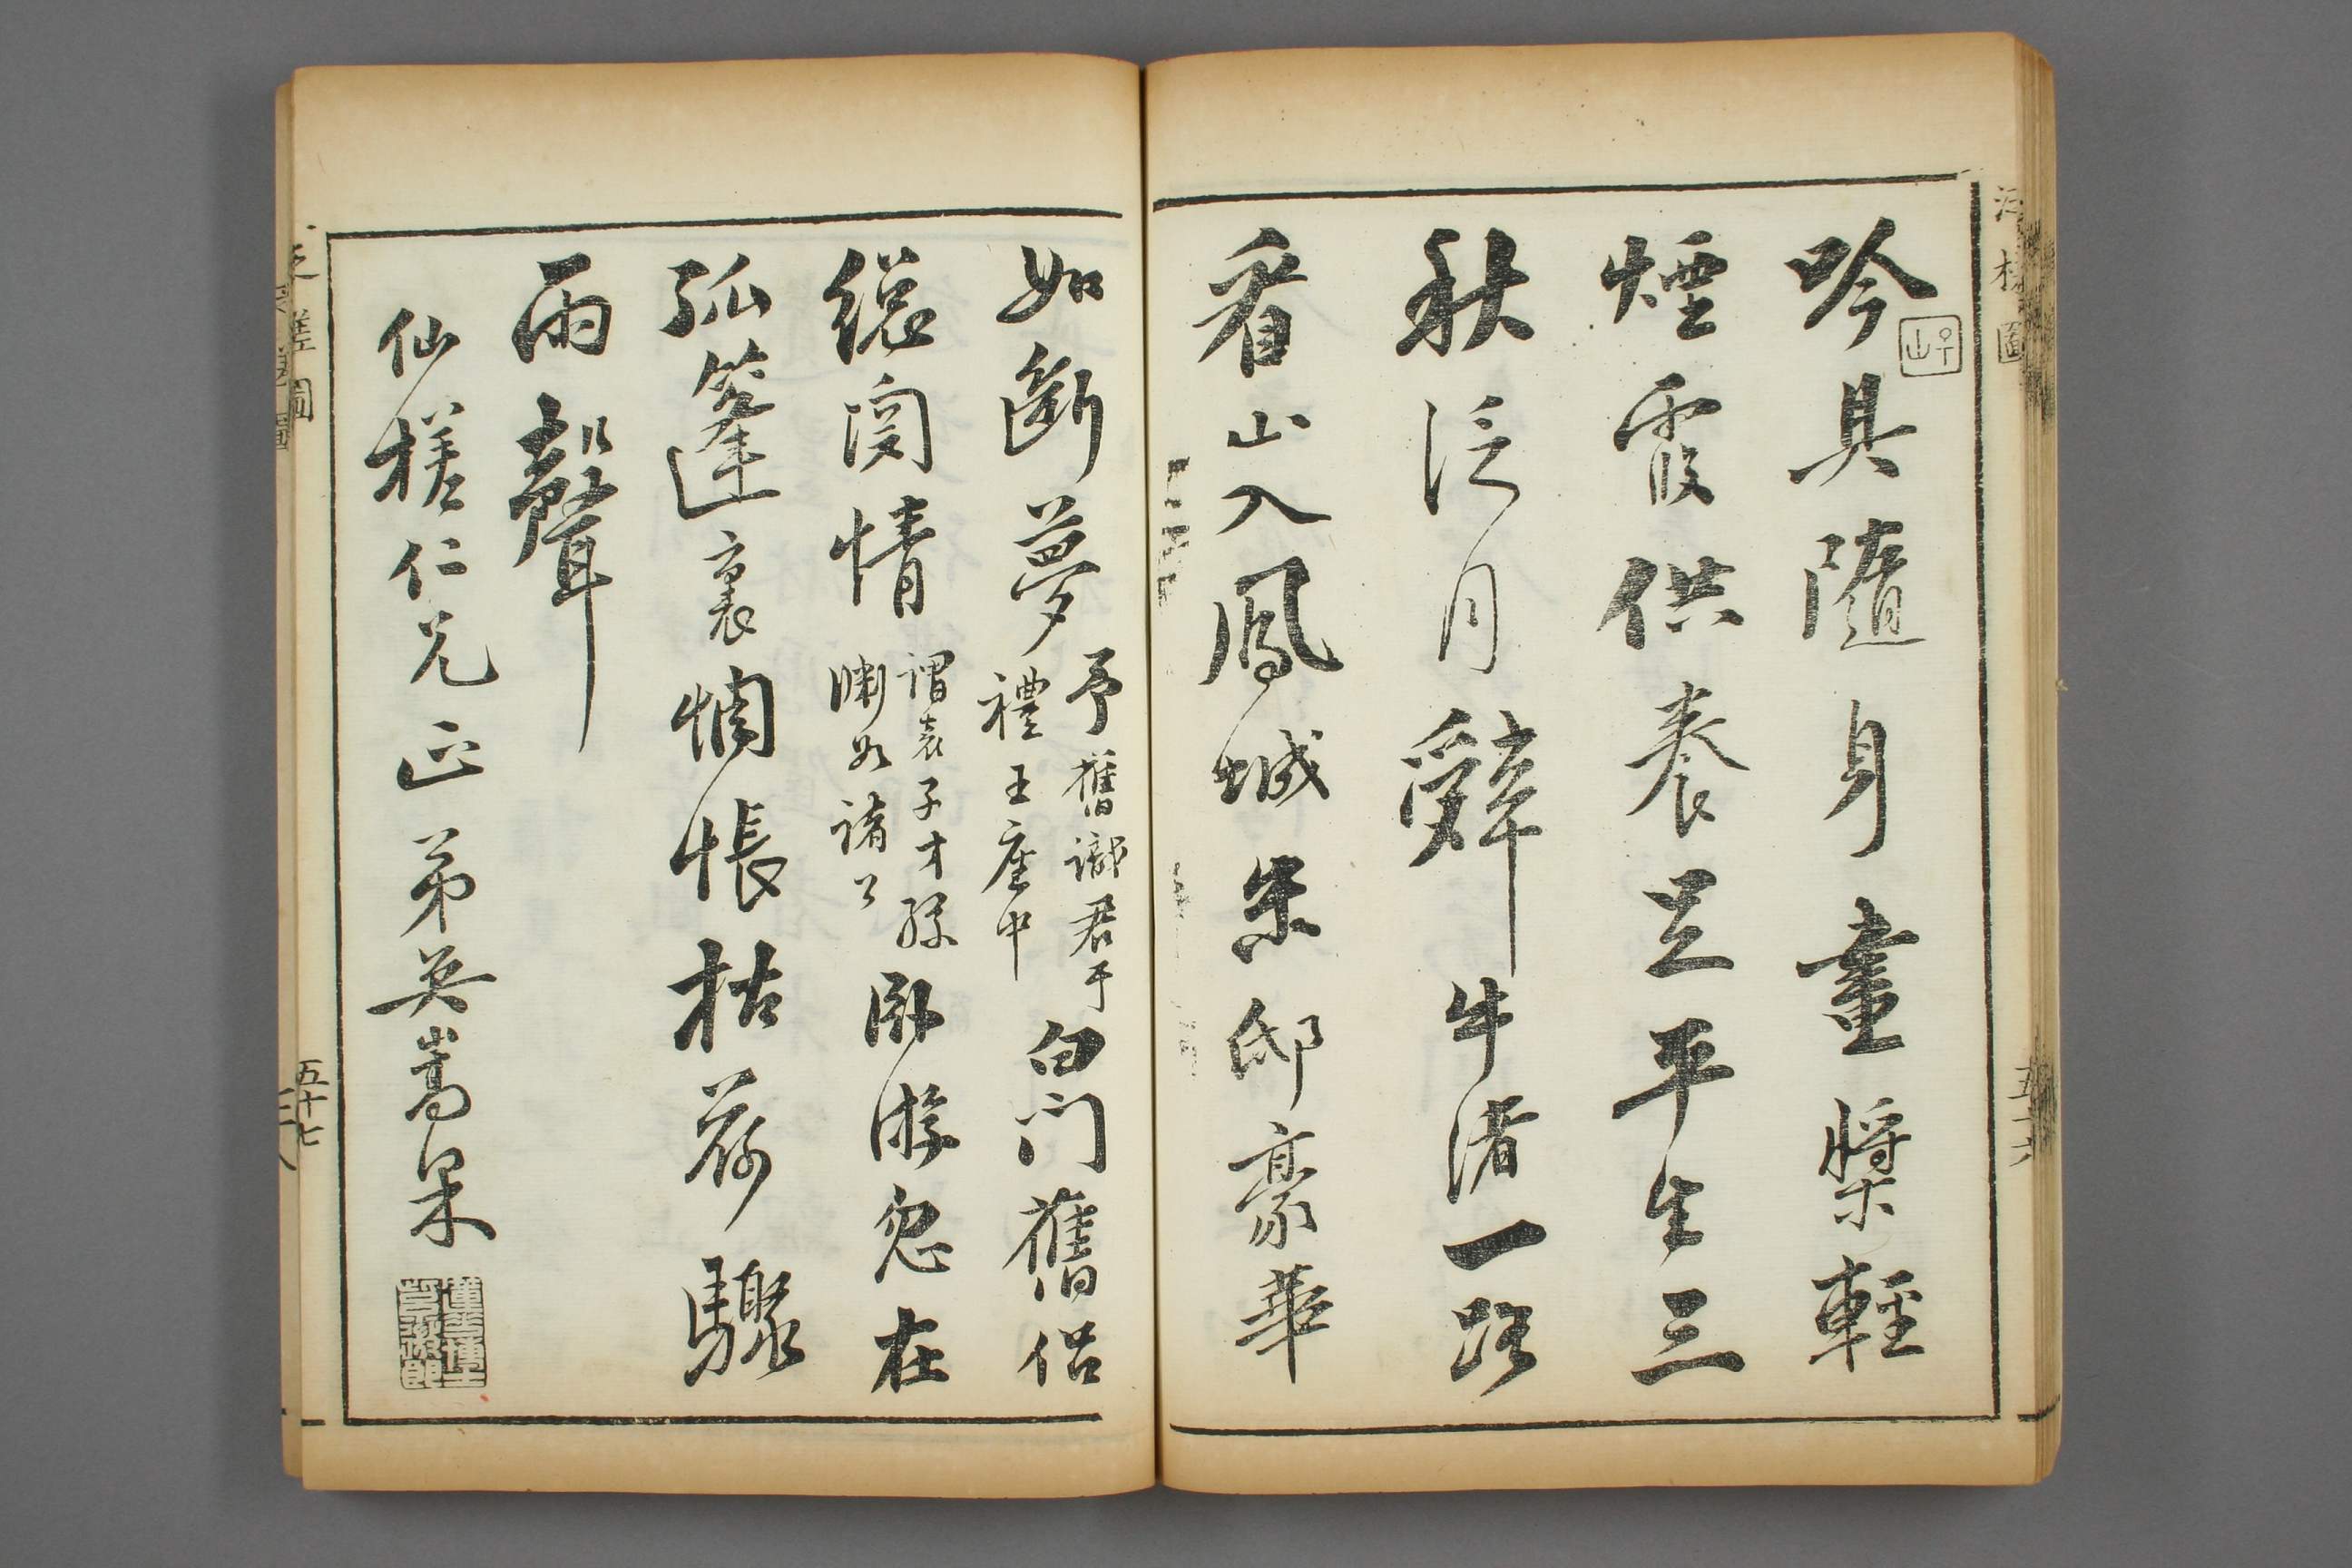 吟具隨身畫槳輕
煙霞供養足平生三
秋泛月辭牛渚一路
看山入鳳城朱邸豪華
如斷夢
予舊識君于
禮王座中
白門舊侶
總関情
謂袁子才孫
淵如諸公
臥游忽在
孤篷裏惆悵枯荷驟
雨聲
仙槎仁兄正 弟吳嵩梁
槎圖
五十七